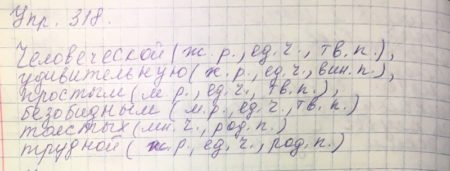 Упр. 318.
Человеческой (ж. р., ед. ч., тв. п.),
удивительную (ж. р., ед. ч., вин. п.),
простым (м р., ед. ч., тв. п.),
безобидным (м. р., ед. ч., тв. п.)
толстых (мн. ч., род. п.)
трудной (ж. р., ед. ч., род. п.)